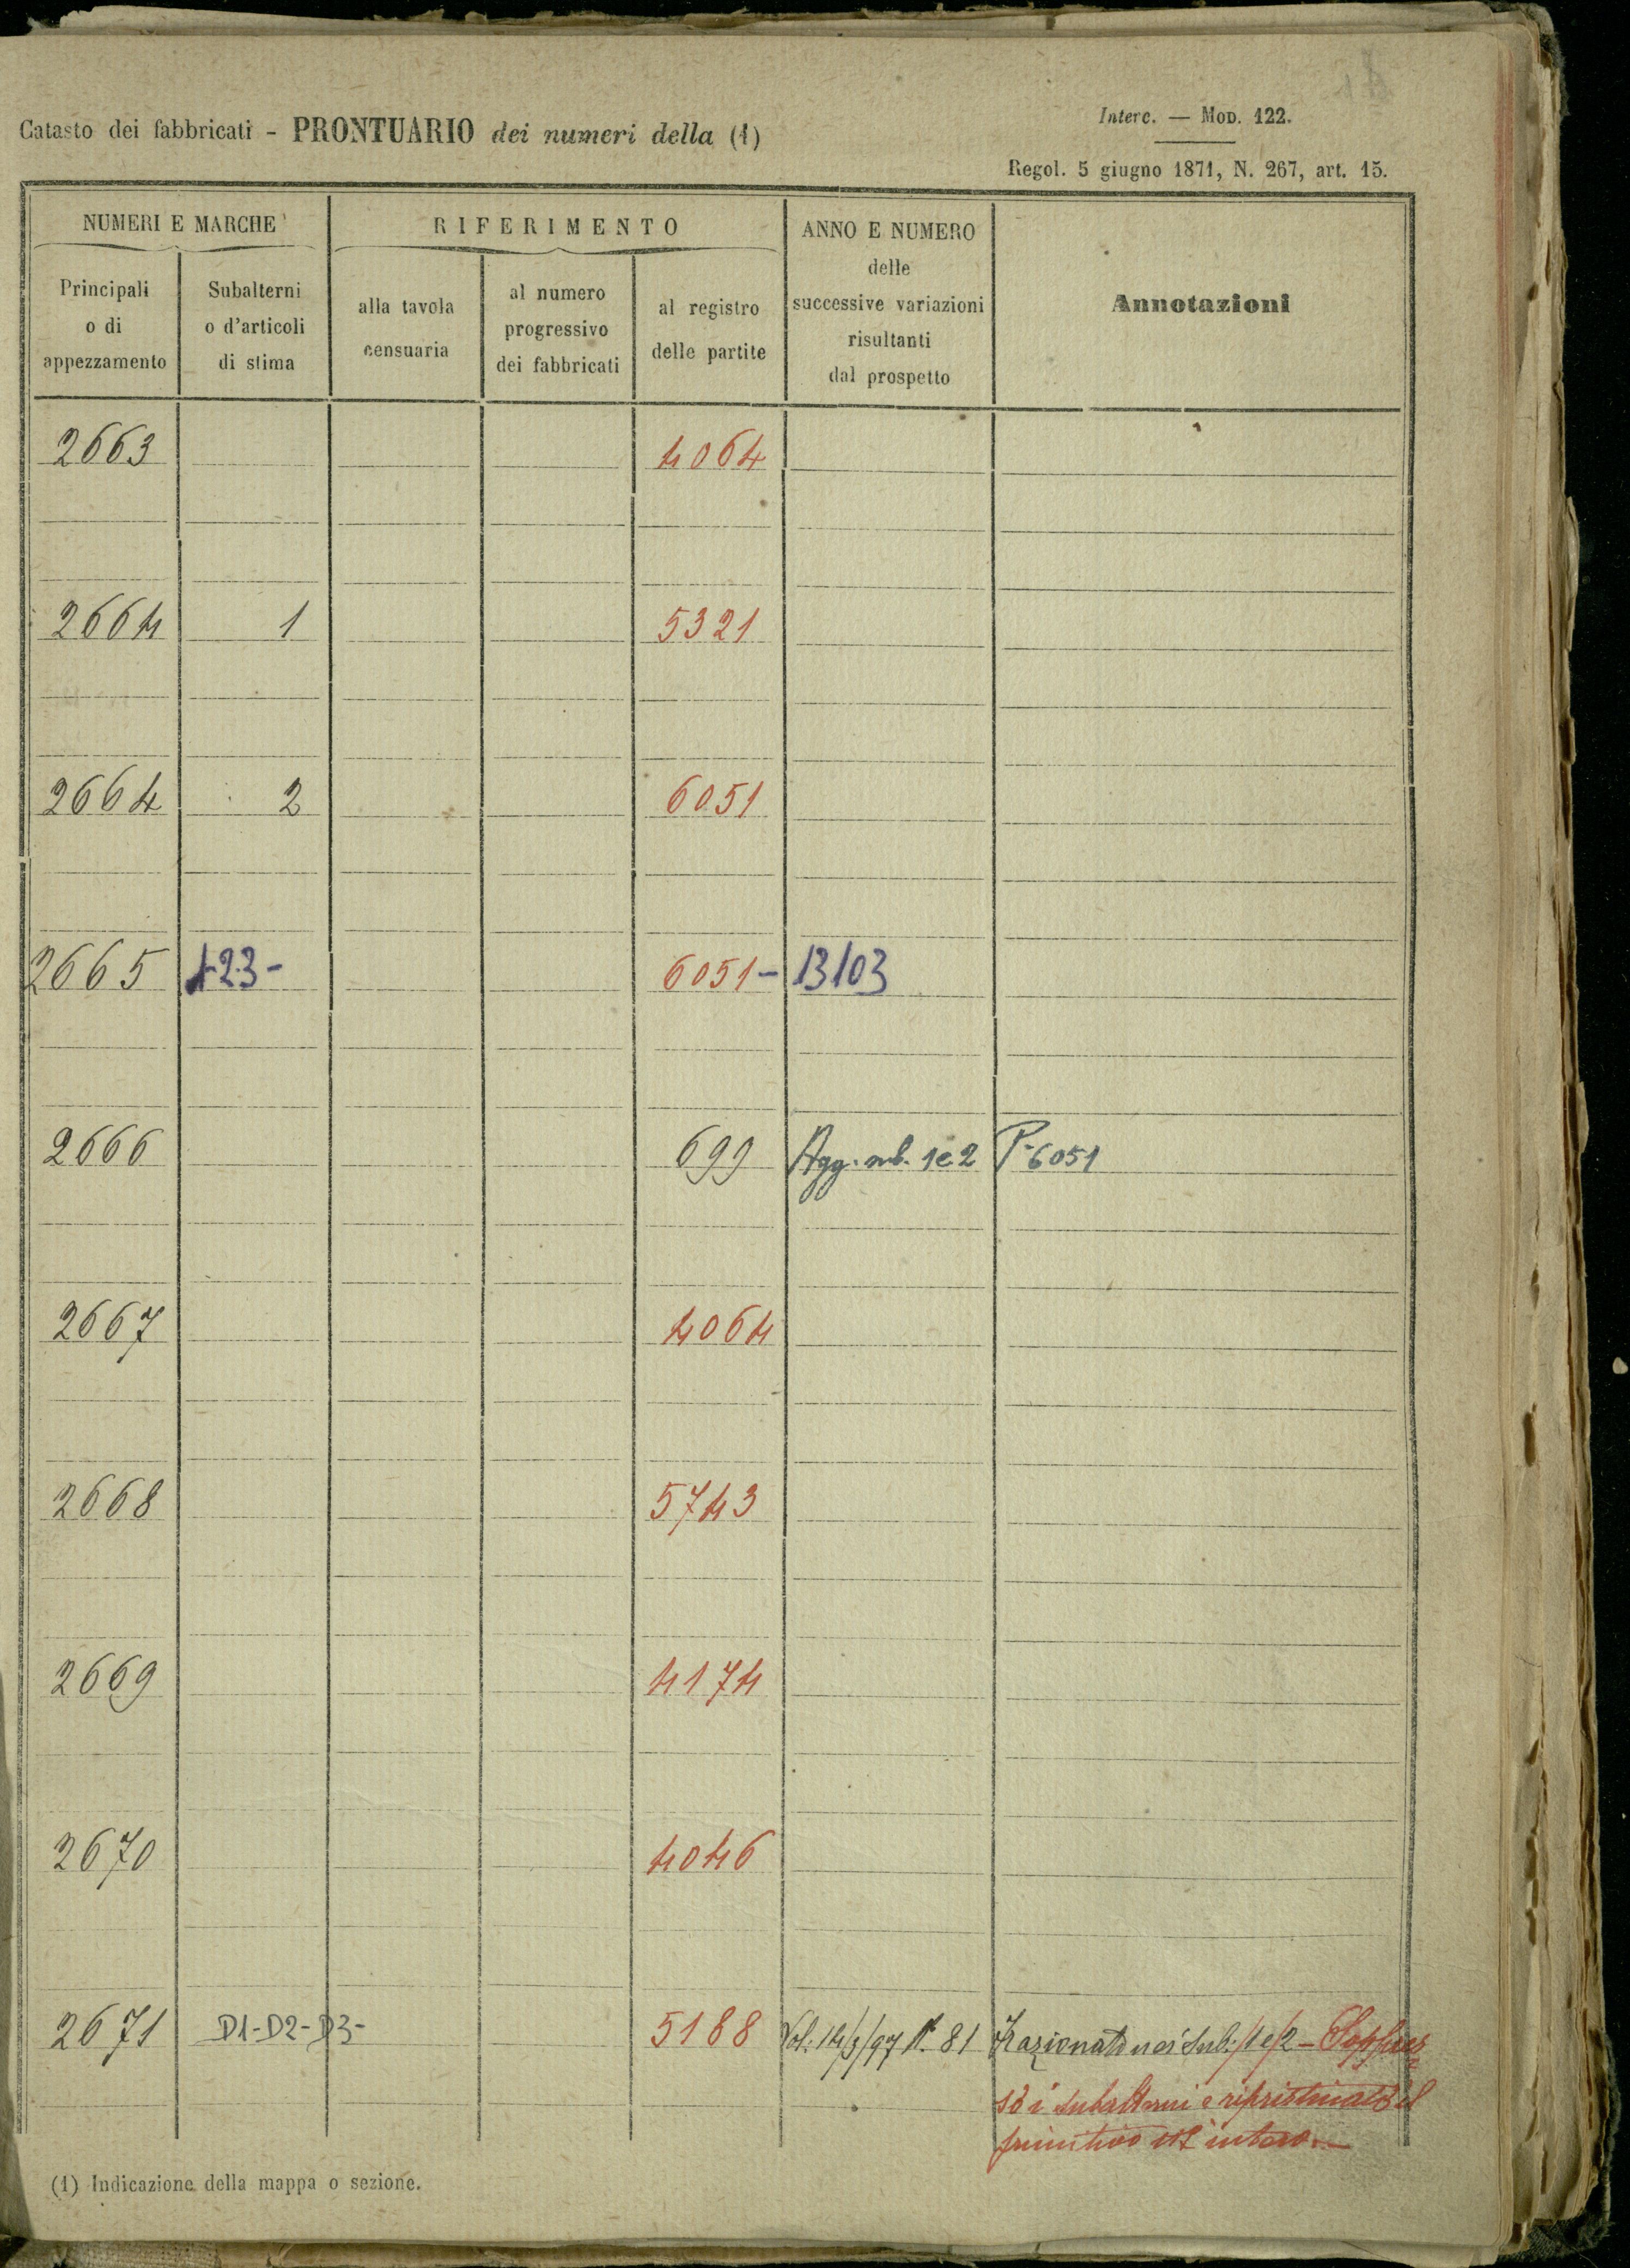 Interc. — MOD. 122.
Catasto dei fabbricati - PRONTUARIO dei numeri della (1)
Regol. 5 giugno 1871, N. 267, art. 15.
NUMERI E MARCHE
RIFERIMENTO
ANNO E NUMERO
delle
successive variazioni
risultanti
dal prospetto
Annotazioni
Principali
o di
appezzamento
Subalterni
o d'articoli
di stima
alla tavola
censuaria
al numero
progressivo
dei fabbricati
al registro
delle partite
2663 4064
2664 1 5321
2664 2 6051
2665 1-2-3- 6051- 13103
2666 699 Agg. sub. 1e2 P. 6051
2667 4064
2668 5743
2669 4174
2670 4046
2671 D1-D2-D3- 5188 Vol. 14/3/97 N. 81 Frazionato nei Sub: /1 e /2 - Soppres
si i subalterni e ripristinato il
primitivo intero.
(1) Indicazione della mappa o sezione.